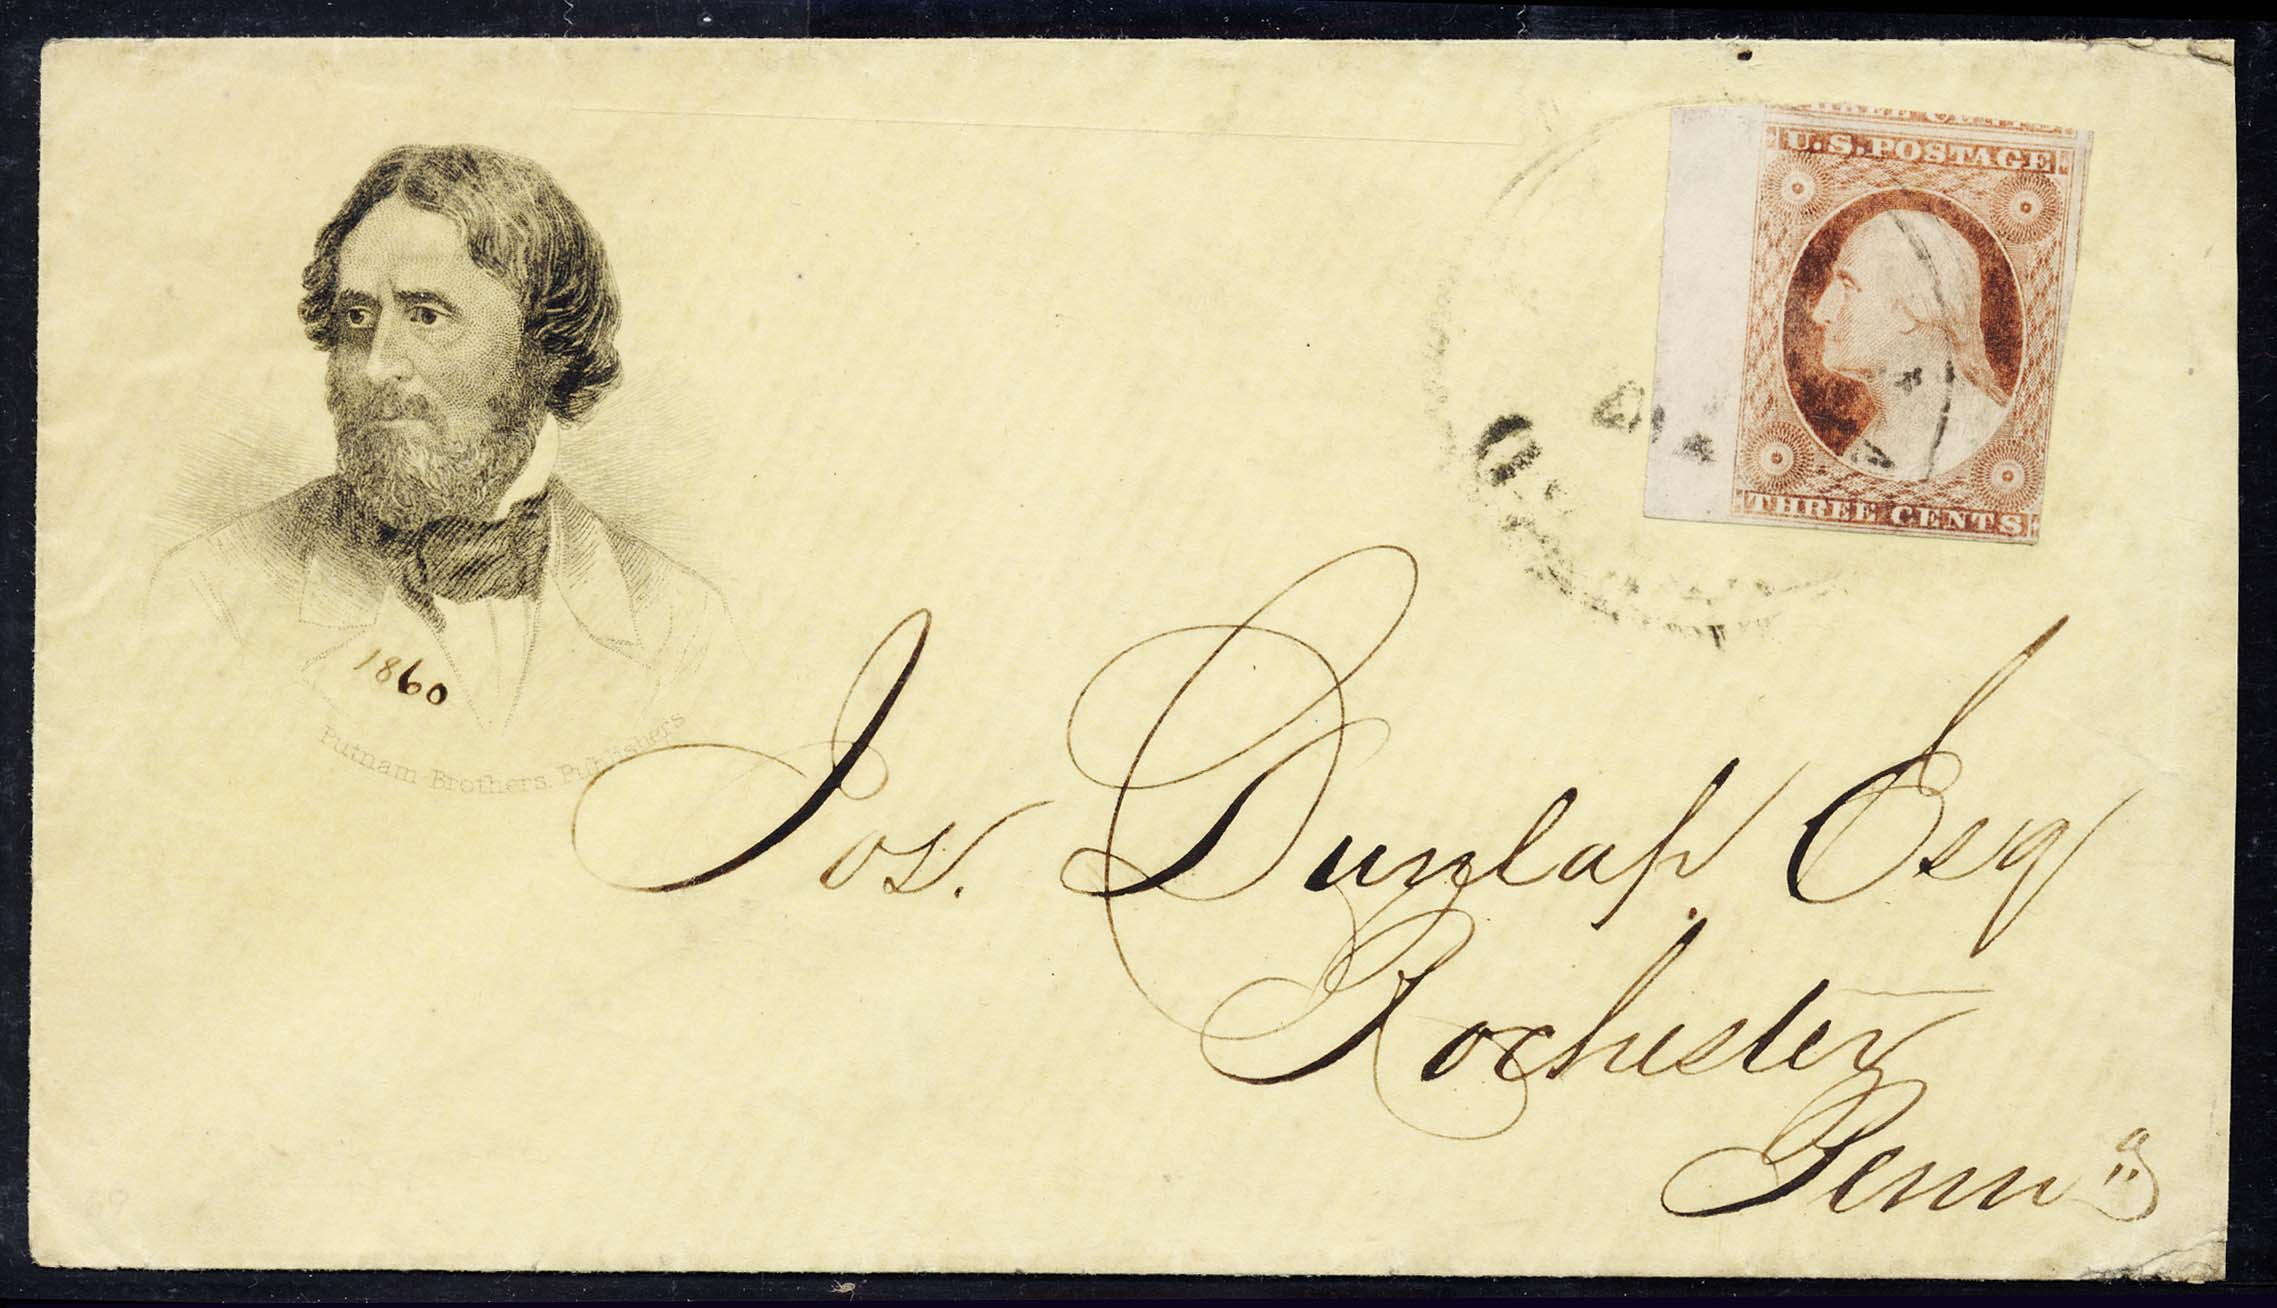 U.S. POSTAGE
THREE CENTS
1860
Putnam Brothers, Publishers
Jos. Dunlap Esq
Rochester
Penn a